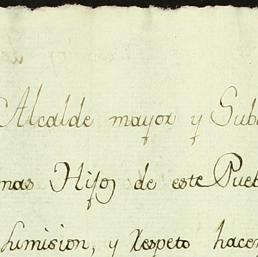 Alcalde mayor y Sub
mas Hijos de este Pueb
Sumision, y Respeto hacem